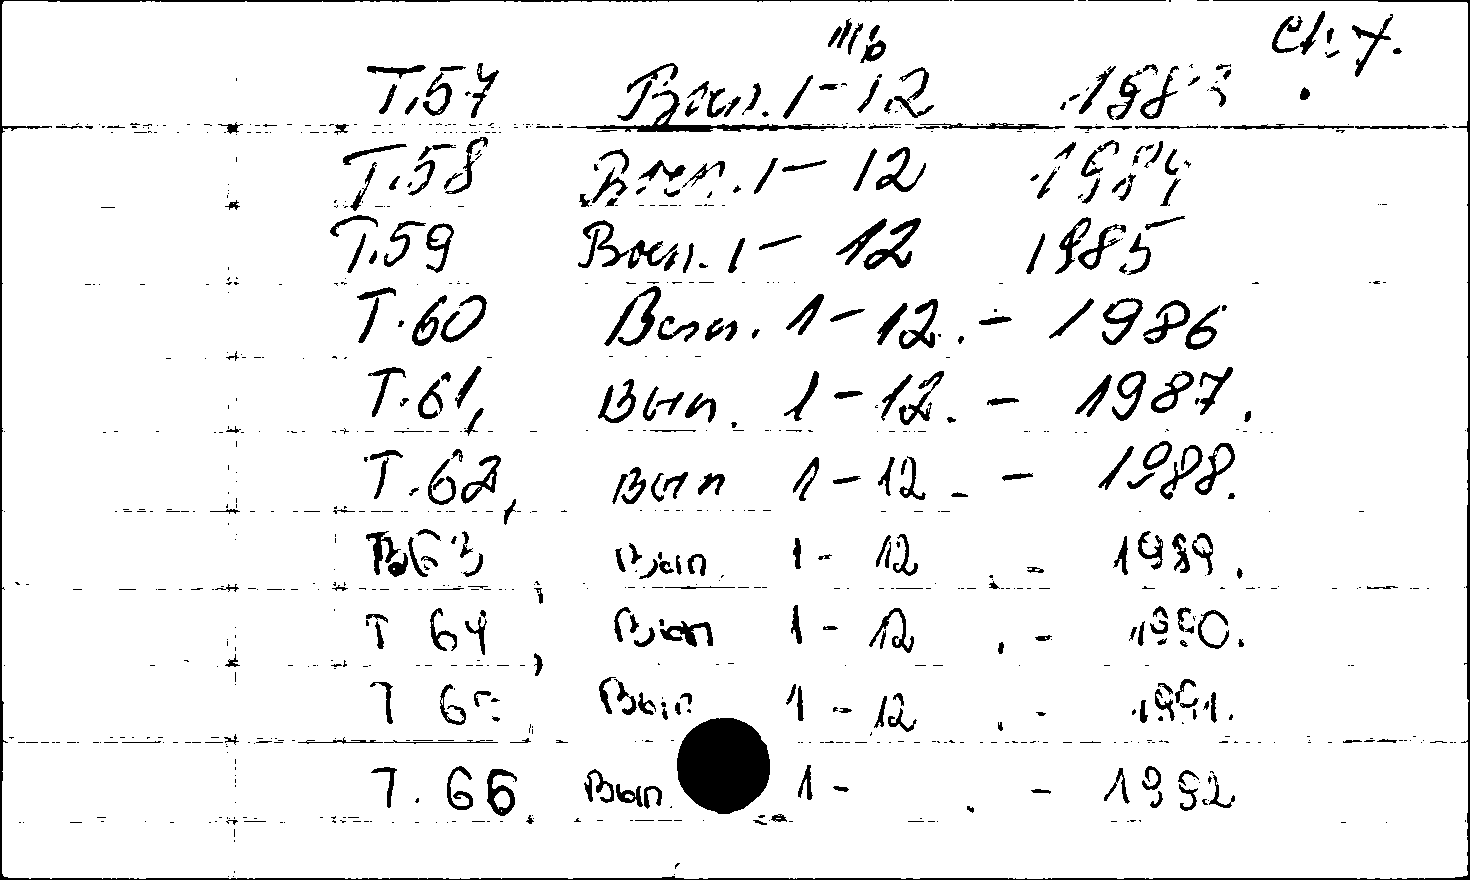 Т.57 Вып. 1-12 1983
Т.58 Вып. 1-12 1984
Т.59 Вып. 1-12 1985
Т.60 Вып. 1-12. - 1986
Т.61, Вып. 1-12. - 1987.
Т.62, вып 1-12 - 1988.
Т 63 Вып 1-12 . - 1989.
Т 64, Вып 1-12 . - 1990.
Т 65, Вып 1-12 . - 1991.
Т. 66 Вып 1- . - 1992